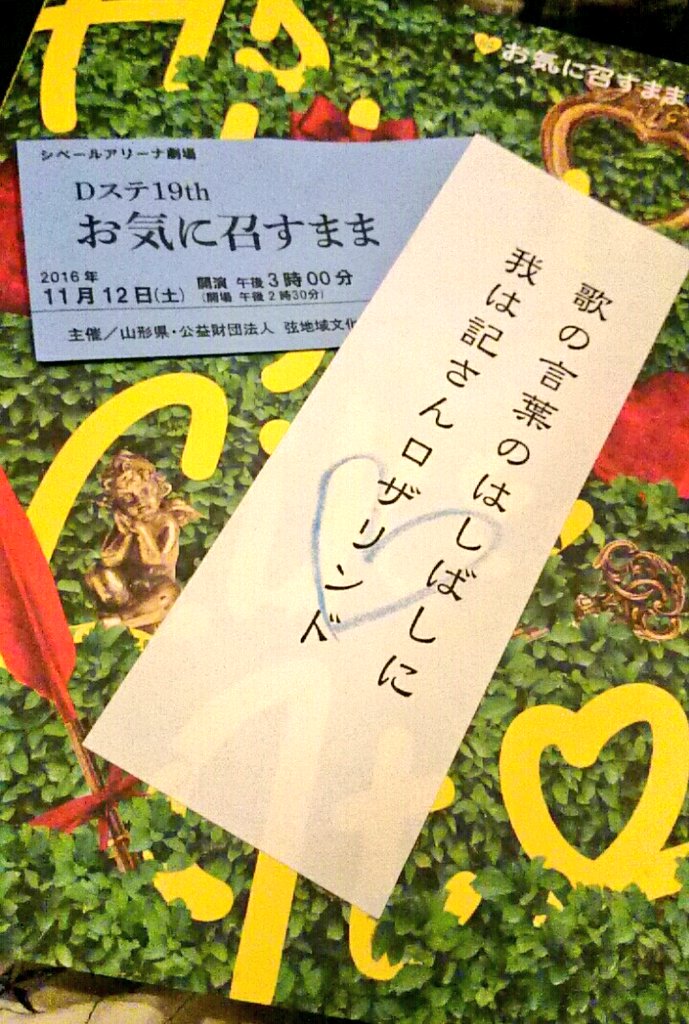 お気に召すまま
シベールアリーナ劇場
Dステ19th
お気に召すまま
2016年
11月12日(土)
開演 午後3時00分
(開場 午後2時30分)
主催／山形県・公益財団法人 弦地域文化
歌の言葉のはしばしに
我は記さんロザリンド